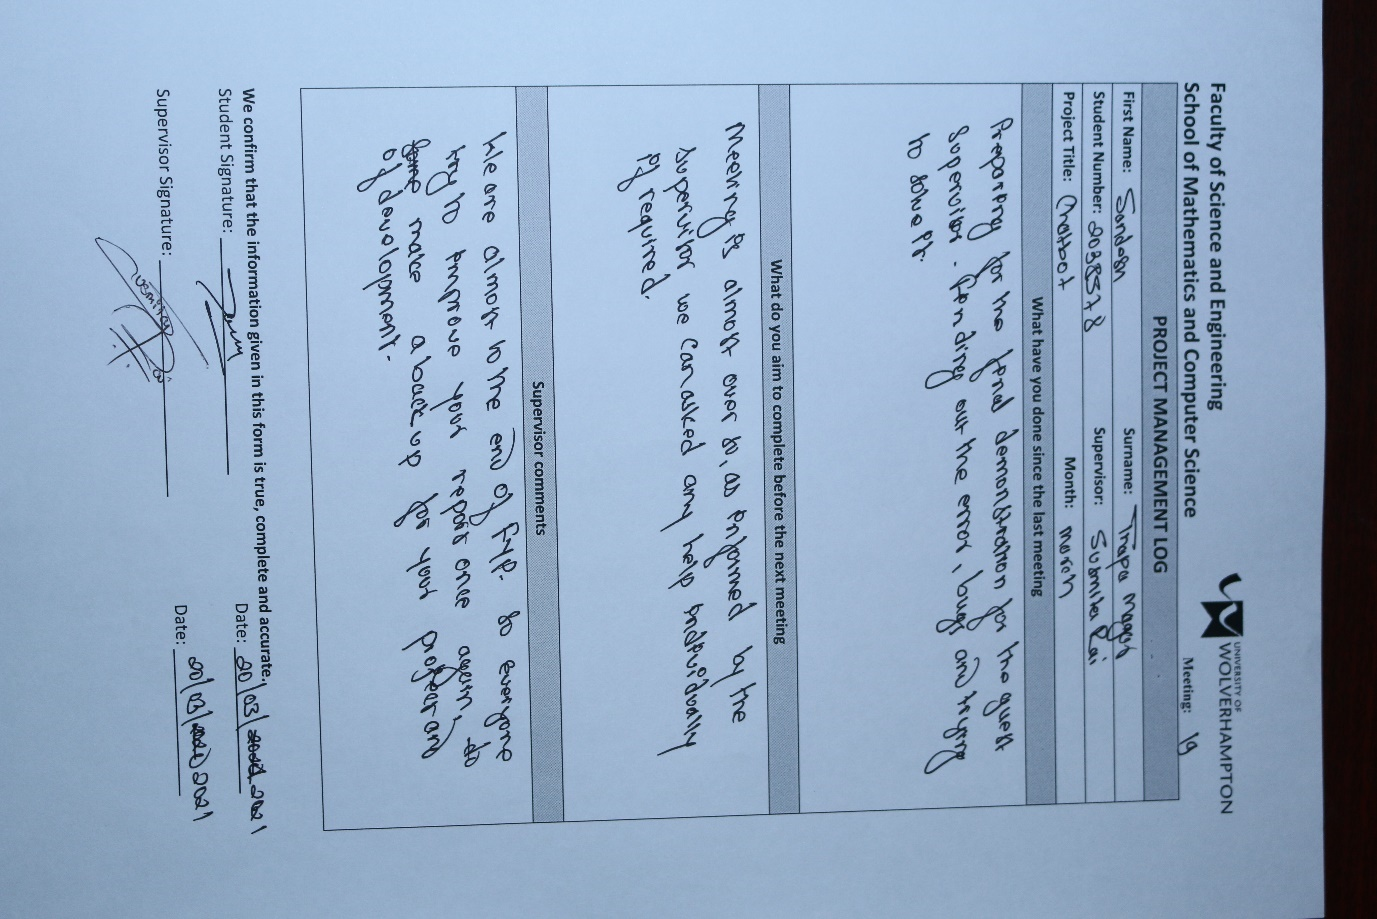 Faculty of Science and Engineering
School of Mathematics and Computer Science
UNIVERSITY OF
WOLVERHAMPTON
Meeting: 19
PROJECT MANAGEMENT LOG
First Name: Sandesh Surname: Thapa Magar
Student Number: 2038578 Supervisor: Submita Rai
Project Title: Chatbot Month: March
What have you done since the last meeting
Preparing for the final demonstration for the guest
supervisor. Finding out the error, bugs and trying
to solve it.
What do you aim to complete before the next meeting
Meeting is almost over so, as informed by the
supervisor we can asked any help individually
if required.
Supervisor comments
We are almost to the end of FYP. So everyone
try to improve your report once again, do
make a backup for your project and
of development.
We confirm that the information given in this form is true, complete and accurate.
Student Signature: Date: 20/03/2021
Supervisor Signature: Date: 20/03/2021